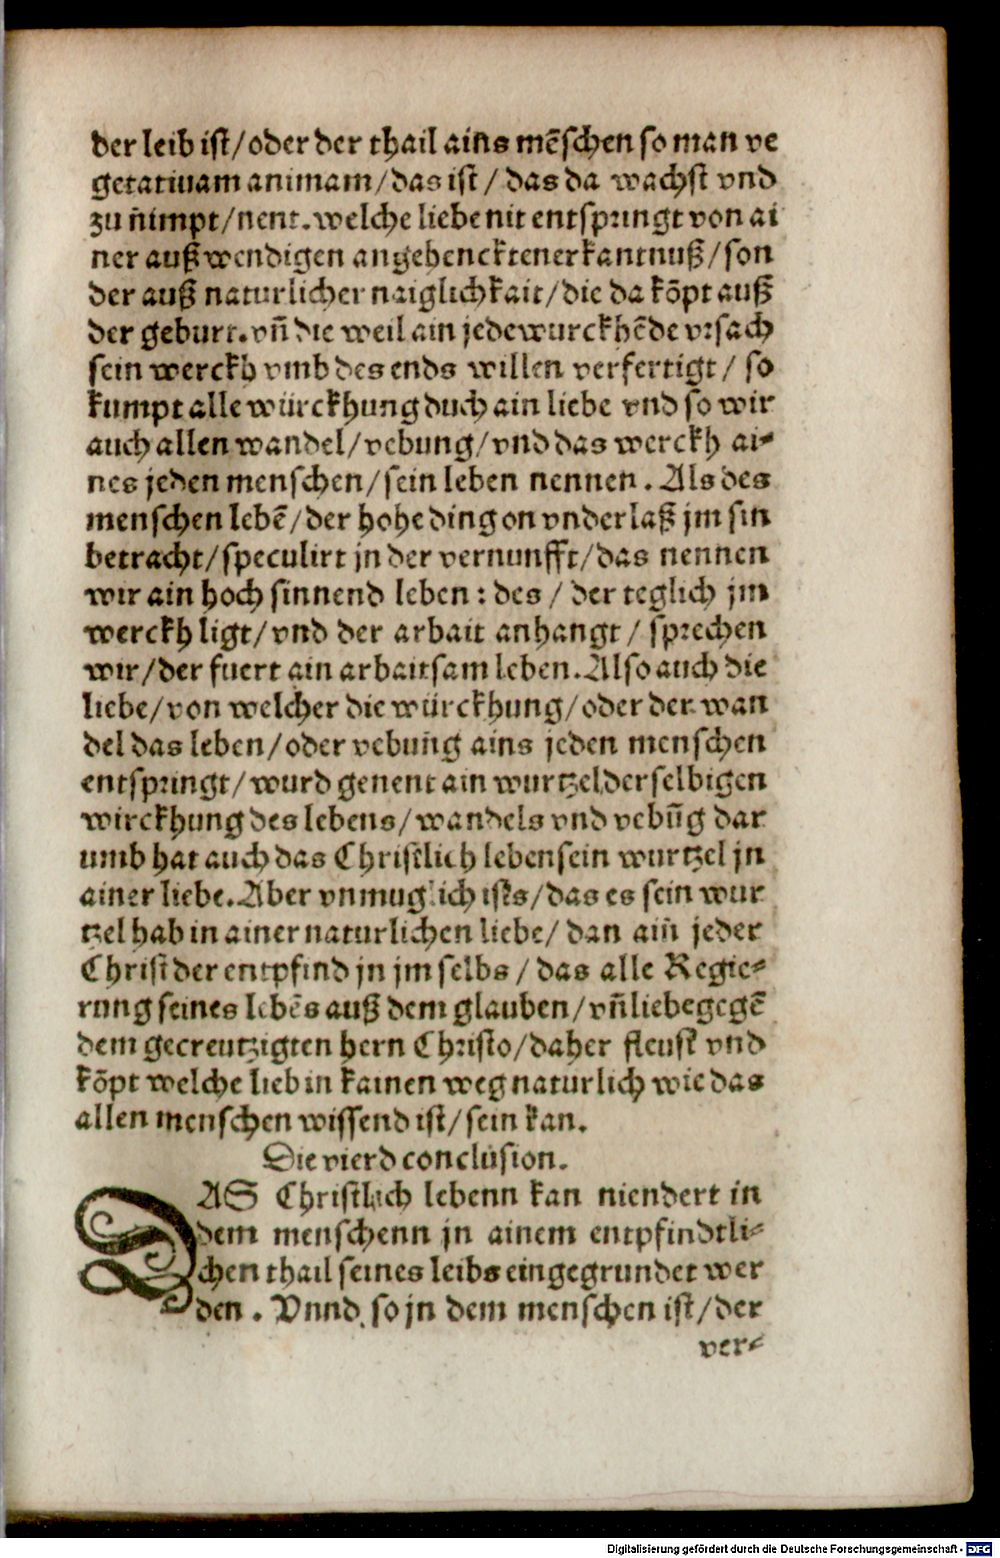 der leib ist/oder der thail ains mēschen so man ve
getatiuam animam/das ist/ das da wachst vnd
zu nimpt/nent. welche liebe nit entspringt von ai
ner außwendigen angehenckten erkantnuß/son
der auß naturlicher naiglichkait/die da kōpt auß
der geburt. vn̄ die weil ain jede wurckhēde vrsach
sein werckh vmb des ends willen verfertigt/ so
kumpt alle würckhung duch ain liebe vnd so wir
auch allen wandel/vebung/vnd das werckh ai-
nes jeden menschen/sein leben nennen. Als des
menschen lebē/der hohe ding on vnderlaß jm sin
betracht/speculirt jn der vernunfft/das nennen
wir ain hoch sinnend leben: des/ der teglich jm
werckh ligt/vnd der arbait anhangt/ sprechen
wir/der fuert ain arbaitsam leben. Also auch die
liebe/von welcher die würckhung/oder der wan
del das leben/oder vebung ains jeden menschen
entspringt/wurd genent ain wurtzel derselbigen
wirckhung des lebens/wandels vnd vebūg dar
umb hat auch das Christlich leben sein wurtzel jn
ainer liebe. Aber vnmuglich ists/das es sein wur
tzel hab in ainer naturlichen liebe/ dan ain jeder
Christ der entpfind jn jm selbs/das alle Regie-
rung seines lebēs auß dem glauben/vn̄ liebe gegē
dem gecreutzigten hern Christo/daher fleust vnd
kōpt welche lieb in kainen weg naturlich wie das
allen menschen wissend ist/sein kan.
Die vierd conclusion.
DAS Christlich lebenn kan niendert in
dem menschenn jn ainem entpfindtli-
chen thail seines leibs eingegrundet wer
den. Vnnd so jn dem menschen ist/der
ver-
Digitalisierung gefördert durch die Deutsche Forschungsgemeinschaft - DFG